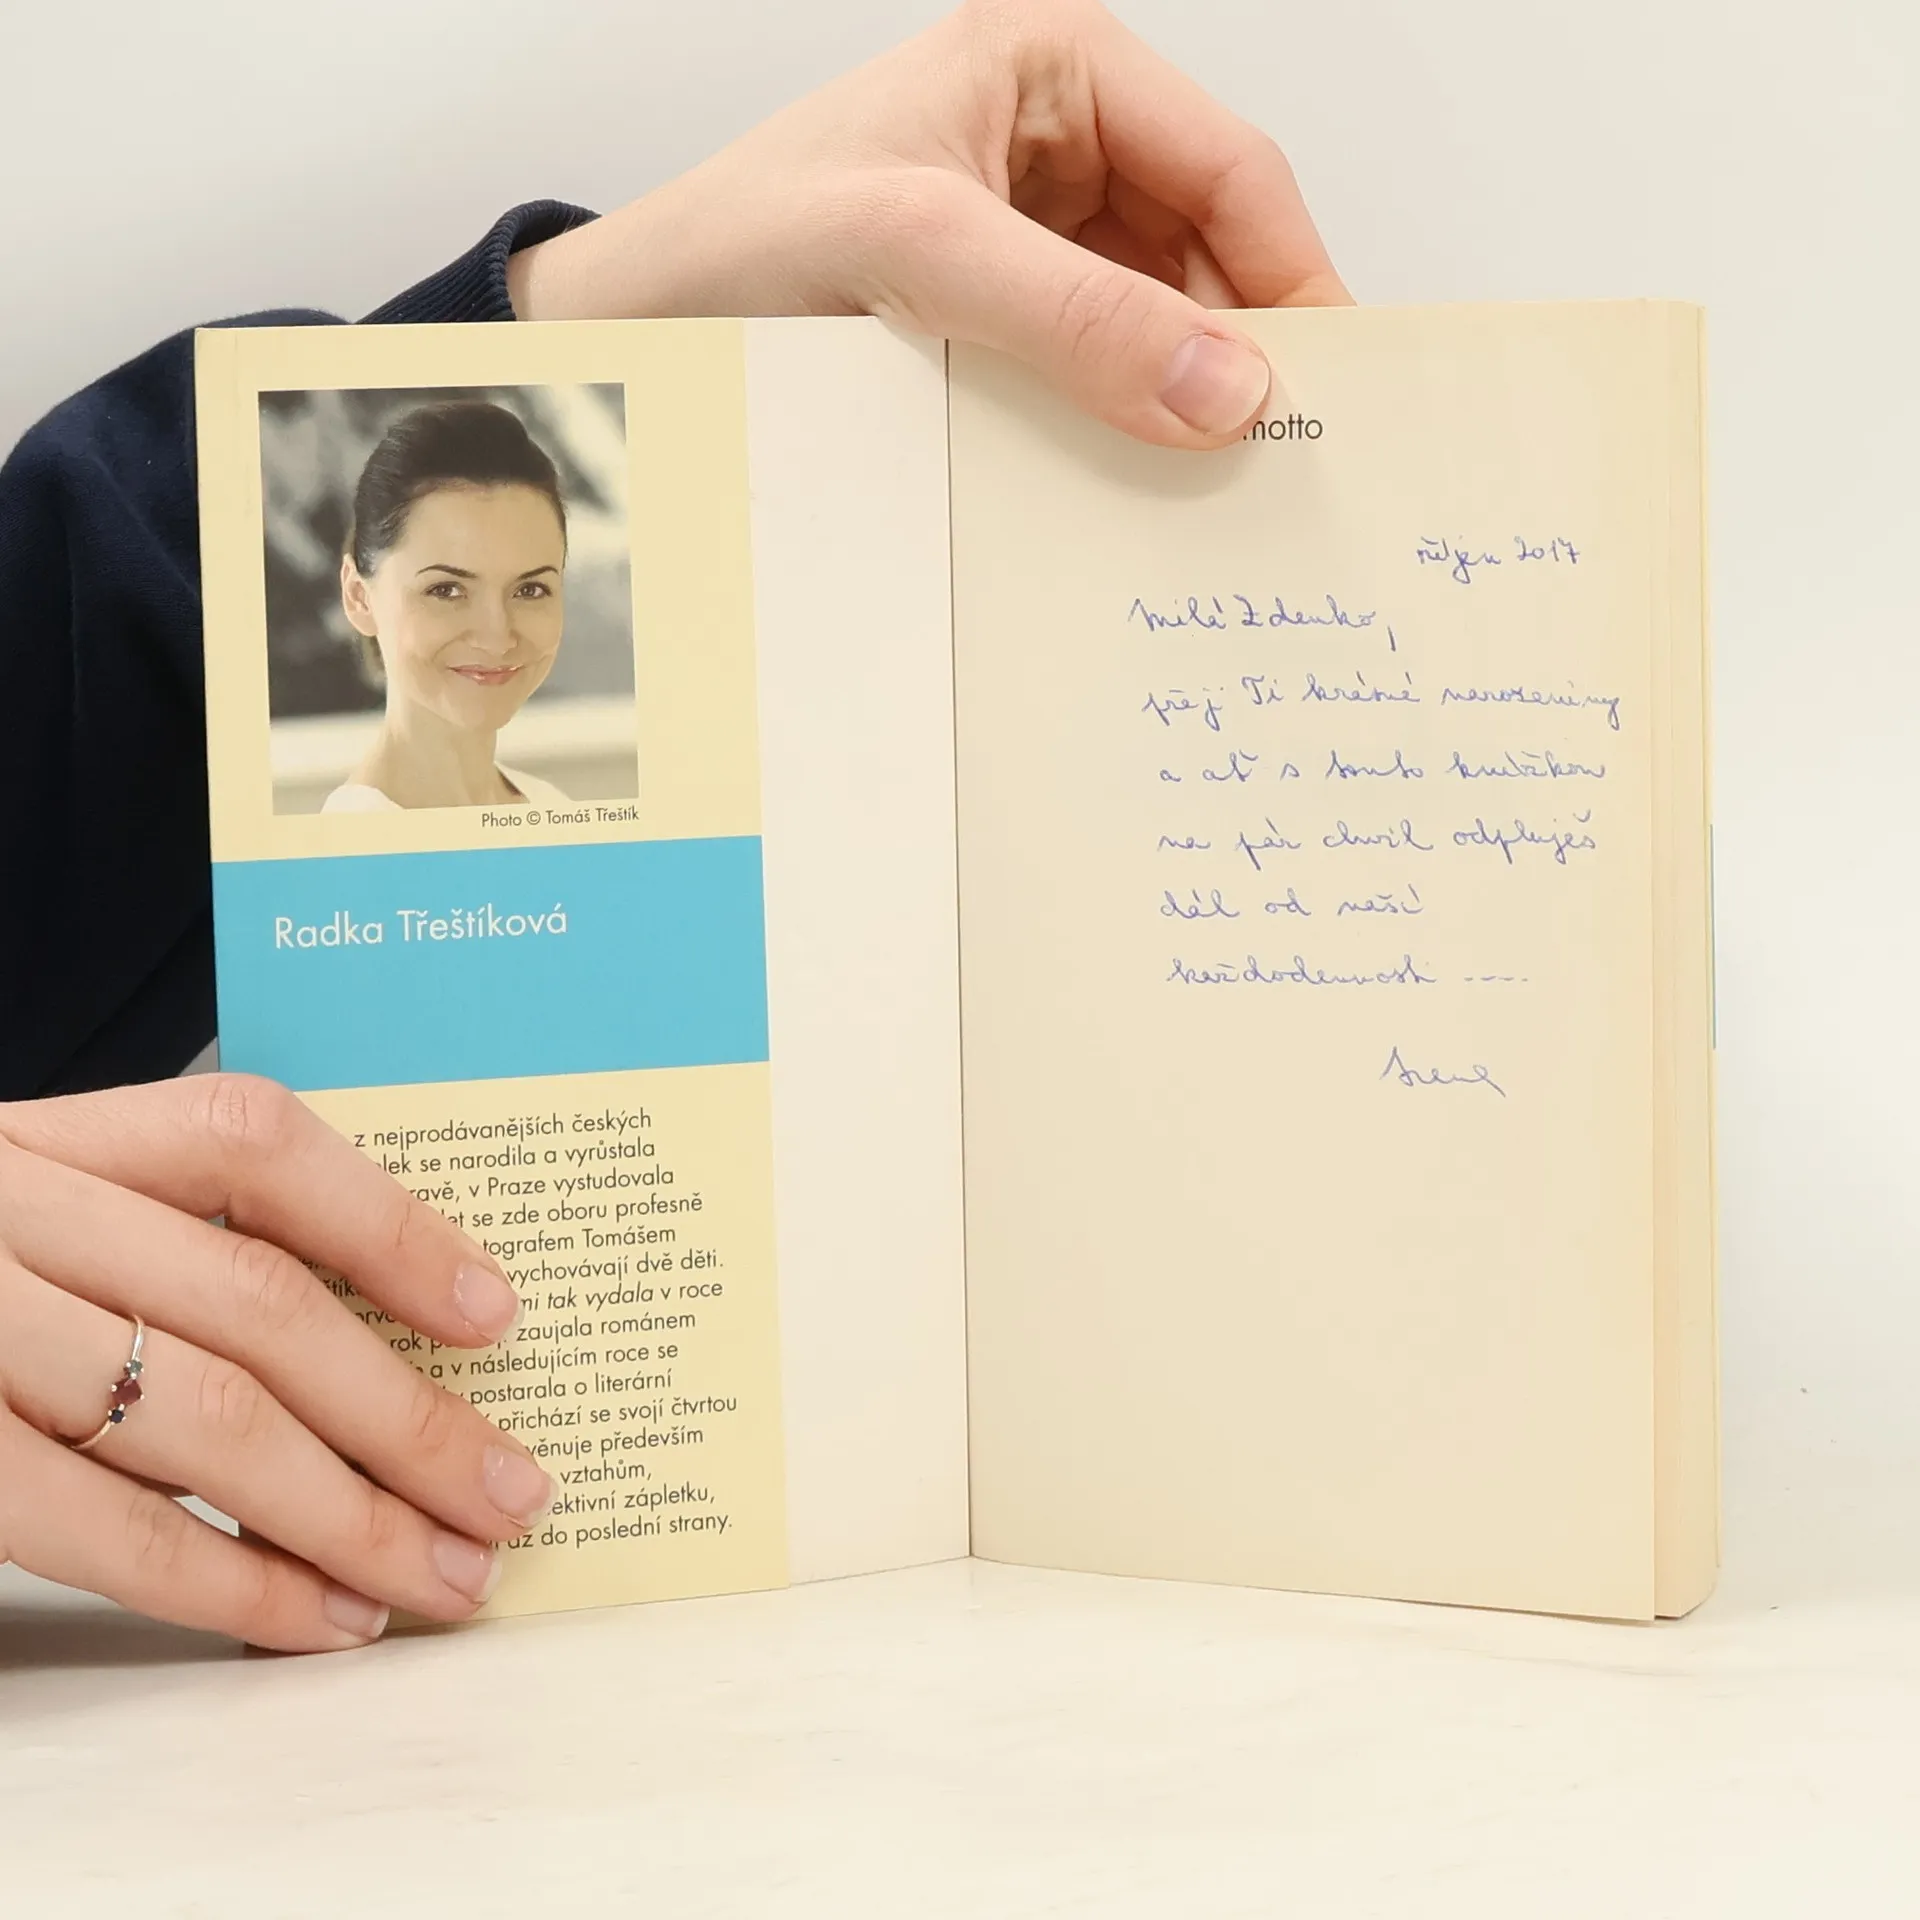 Photo © Tomáš Třeštík
Radka Třeštíková
z nejprodávanějších českých
se narodila a vyrůstala
v Praze vystudovala
se zde oboru profesně
Tomášem
vychovávají dvě děti.
tak vydala v roce
rok zaujala románem
a v následujícím roce se
postarala o literární
přichází se svojí čtvrtou
věnuje především
vztahům,
zápletku,
až do poslední strany.
motto
říjen 2017
Milá Zdenko,
přeji Ti krásné narozeniny
a ať s touto knížkou
na pár chvil odpluješ
dál od naší
každodennosti ----